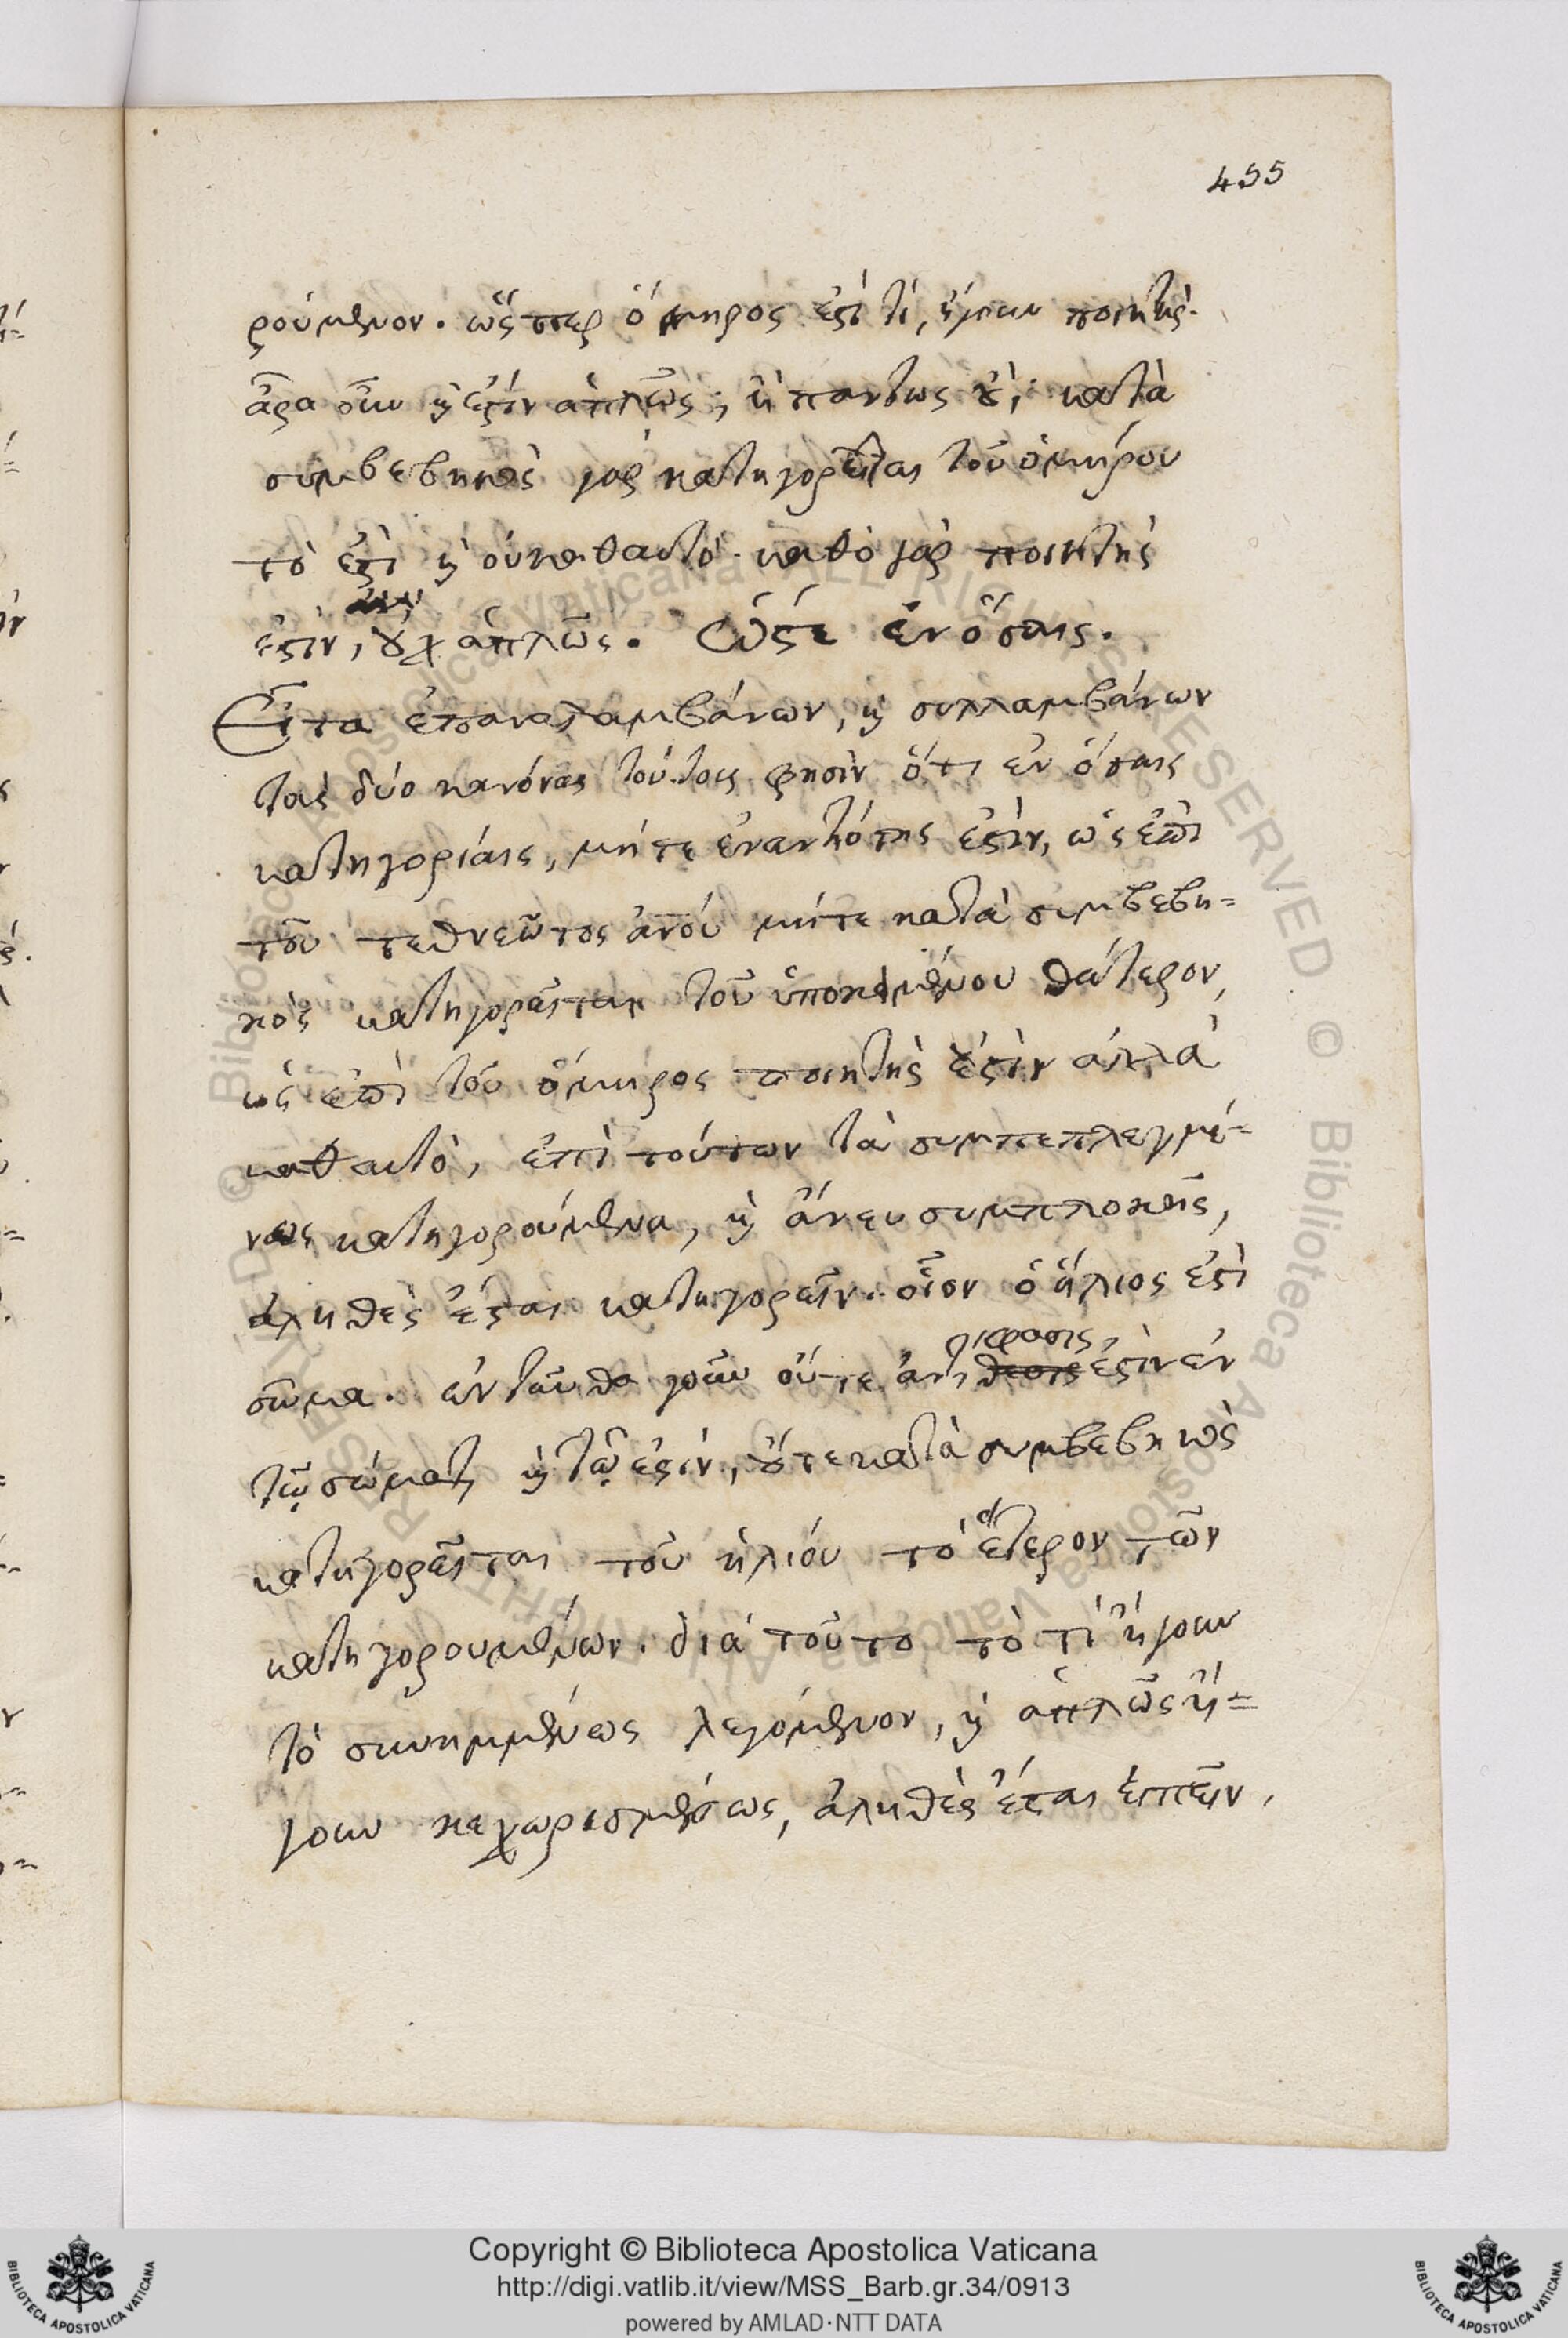 455
ρούμενον. ὥσπερ ὅμηρος ἐστί τί, ἤγουν ποιητής.
ἆρα οὖν καὶ ἐστὶν ἁπλῶς; ἢ παντως οὔ; κατὰ
συμβεβηκὸς γὰρ κατηγορεῖται τοῦ ὁμήρου
τὸ ἐστὶ καὶ οὐ καθαυτό. καθὸ γὰρ ποιητής
ἐστιν, οὐχ ἁπλῶς. Ὥστε ἐν ὅσαις.
Εἶτα ἐπαναλαμβάνων, καὶ συλλαμβάνων
τοὺς δύο κανόνας τούτους φησὶν ὅτι ἐν ὅσαις
κατηγορίαις, μήτε ἐναντιότης ἐστὶν, ὡς ἐπὶ
τοῦ τεθνεῶτος ἀνού μήτε κατὰ συμβεβη=
κὸς κατηγορεῖται τοῦ ὑποκειμένου θάτερον,
ὡς ἐπὶ τοῦ ὅμηρος ποιητής ἐστὶν ἀλλὰ
καθαυτὸ, ἐπὶ τούτων τὰ συμπεπλεγμέ=
νως κατηγορούμενα, καὶ ἄνευ συμπλοκῆς,
ἀληθὲς ἔσται κατηγορεῖν. οἷον ὁ ἥλιος ἐστὶ
σῶμα. ἐνταῦθα γοῦν οὔτε ἀντίφασις ἐστὶν ἐν
τῷ σώματι καὶ τῷ ἐστίν, οὔτε κατὰ συμβεβηκὸς
κατηγορεῖται τοῦ ἡλίου τὸ ἕτερον τῶν
κατηγορουμένων. διὰ τοῦτο τὸ τὶ ἤγουν
τὸ συνημμένως λεγόμενον, καὶ ἁπλῶς ἤ=
γουν κεχωρισμένως, ἀληθὲς ἔσται εἰπεῖν,
Copyright © Biblioteca Apostolica Vaticana
http://digi.vatlib.it/view/MSS_Barb.gr.34/0913
powered by AMLAD·NTT DATA